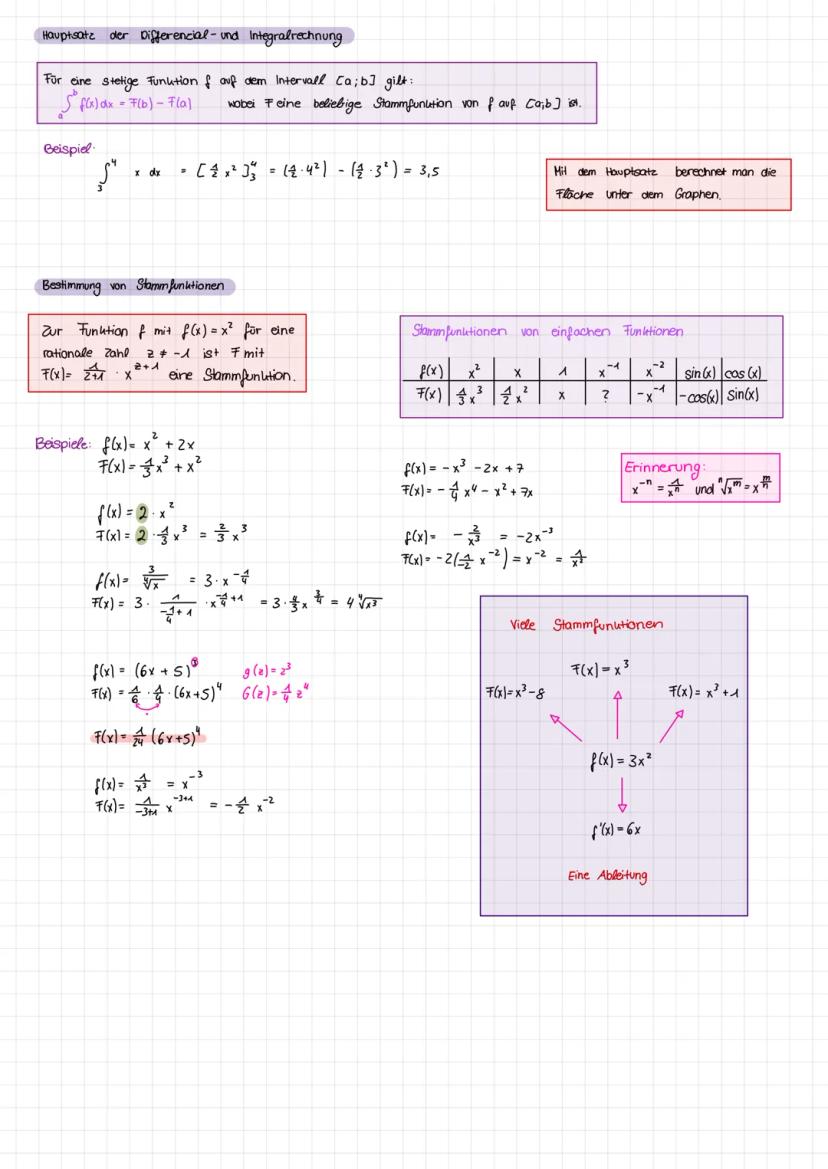 Hauptsatz der Differencial- und Integralrechnung
Für eine stetige Funktion f auf dem Intervall [a;b] gilt:
∫ₐᵇ f(x) dx = F(b) - F(a) wobei F eine beliebige Stammfunktion von f auf [a;b] ist.
Beispiel:
∫₃⁴ x dx = [½ x²]₃⁴ = (½ · 4²) - (½ · 3²) = 3,5
Mit dem Hauptsatz berechnet man die
Fläche unter dem Graphen.
Bestimmung von Stammfunktionen
Zur Funktion f mit f(x) = x² für eine
rationale Zahl z ≠ -1 ist F mit
F(x) = 1/(z+1) · x^(z+1) eine Stammfunktion.
Stammfunktionen von einfachen Funktionen
f(x) | x² | x | 1 | x⁻¹ | x⁻² | sin(x) | cos(x)
F(x) | ⅓ x³ | ½ x² | x | ? | -x⁻¹ | -cos(x) | sin(x)
Beispiele: f(x) = x² + 2x
F(x) = ⅓ x³ + x²
f(x) = 2 · x²
F(x) = 2 · ⅓ x³ = ⅔ x³
f(x) = 3/⁴√x = 3 · x^(-¼)
F(x) = 3 · 1/(-¼+1) · x^(-¼+1) = 3 · 4/3 x^(¾) = 4 ⁴√x³
f(x) = (6x + 5)³ g(z) = z³
F(x) = 1/6 · ¼ · (6x+5)⁴ G(z) = ¼ z⁴
F(x) = 1/24 (6x+5)⁴
f(x) = 1/x³ = x⁻³
F(x) = 1/(-3+1) x^(-3+1) = -½ x⁻²
f(x) = -x³ - 2x + 7
F(x) = -¼ x⁴ - x² + 7x
f(x) = -2/x³ = -2x⁻³
F(x) = -2(1/-2 x⁻²) = x⁻² = 1/x²
Erinnerung:
x⁻ⁿ = 1/xⁿ und ⁿ√xᵐ = x^(m/n)
Viele Stammfunktionen
F(x) = x³
F(x) = x³ - 8 F(x) = x³ + 1
f(x) = 3x²
f'(x) = 6x
Eine Ableitung